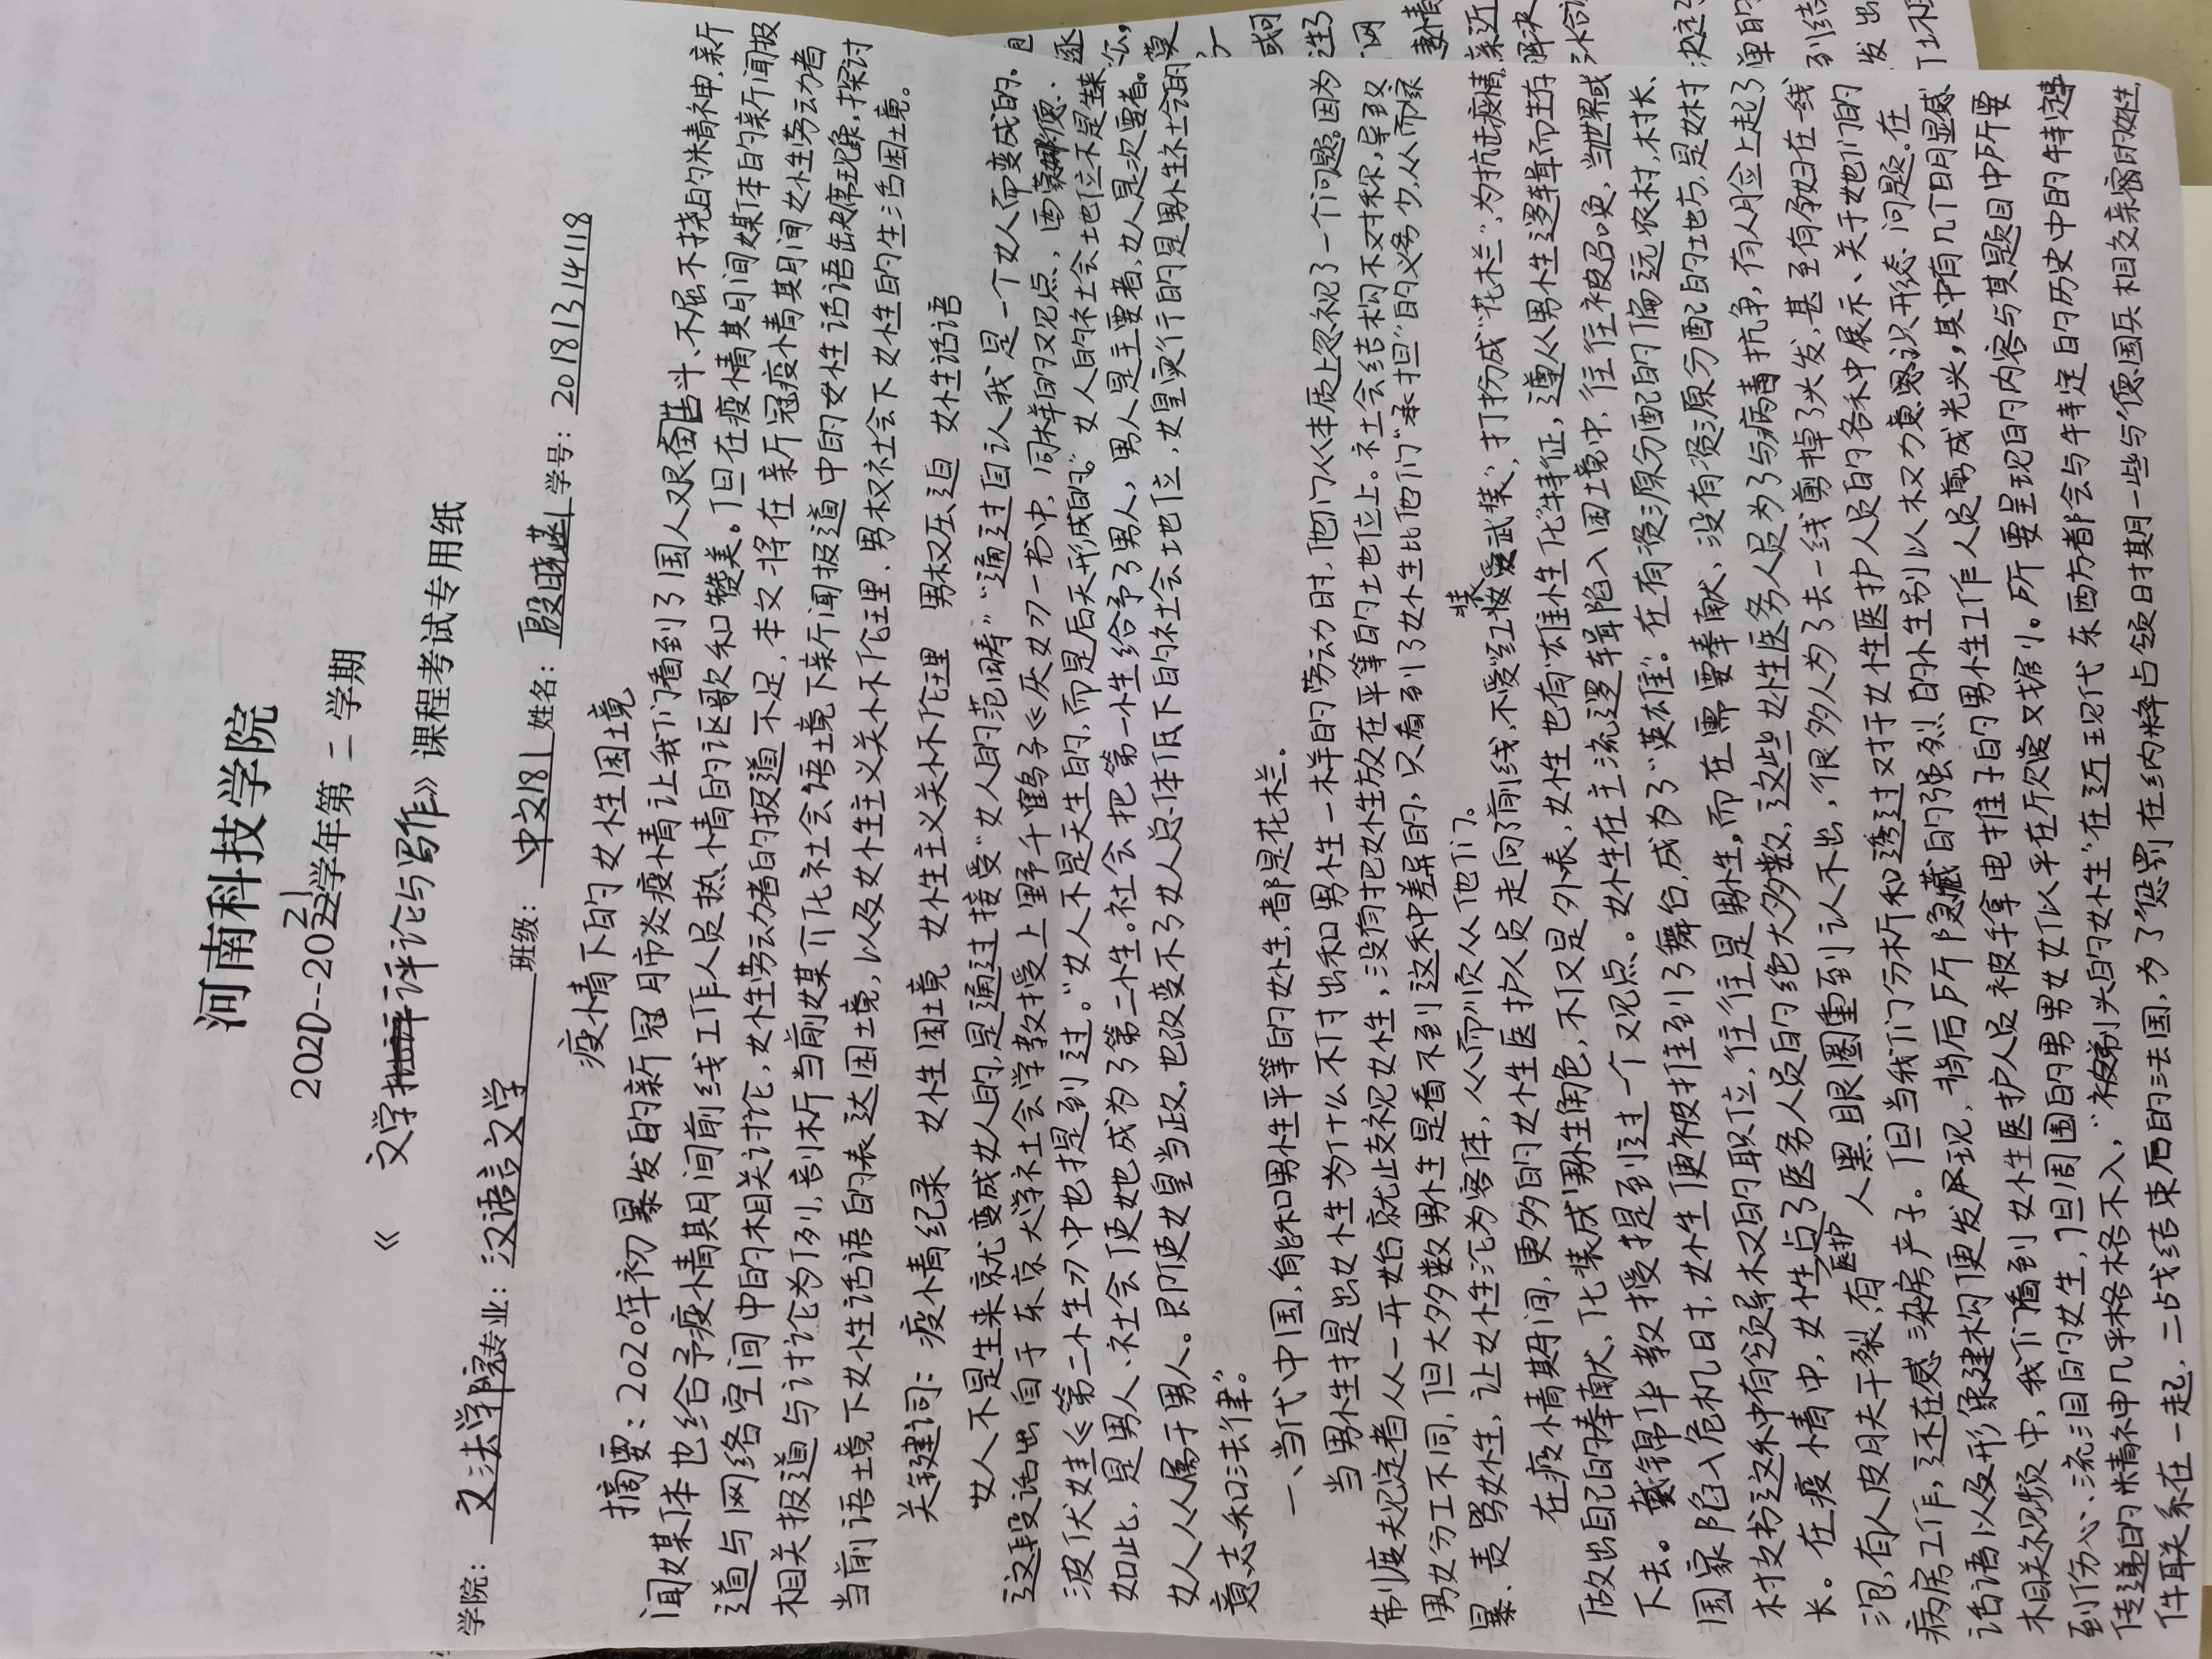 河南科技学院
2020--2021学年第 二 学期
《 文学评论与写作》课程考试专用纸
学院: 文法学院 专业: 汉语言文学 班级: 中文181 姓名: 殷晓菡 学号: 20181314118
疫情下的女性困境
摘要: 2020年初暴发的新冠肺炎疫情让我们看到了国人艰苦奋斗、不屈不挠的精神,新
闻媒体也给予疫情期间前线工作人员热情的讴歌和赞美。但在疫情期间媒体的新闻报
道与网络空间中的相关讨论,女性劳动者的报道不足,本文将在新冠疫情期间女性劳动者
相关报道与讨论为例,剖析当前媒介化社会语境下新闻报道中的女性话语缺席现象,探讨
当前语境下女性话语的表达困境,以及女性主义关怀伦理、男权社会下女性的生活困境。
关键词: 疫情纪录 女性困境 女性主义关怀伦理 男权压迫 女性话语
女人不是生来就变成女人的,是通过接受“女人的范畴”“通过自认我是一个女人而变成的.
这段话出自于东京大学社会学教授上野千鹤子《厌女》一书中,同样的观点,西蒙娜·德·
波伏娃《第二性》中也提到过。“女人不是天生的,而是后天形成的。”女人的社会地位不是生来
如此,是男人、社会使她成为了第二性。社会把第一性给予了男人,男人是主要者,女人是次要者。
女人从属于男人。即使女皇当政,也改变不了女人总体低下的社会地位,女皇实行的是男性社会的
意志和法律”。
一、当代中国,能和男性平等的女性,都是花木兰.
当男性提出女性为什么不付出和男性一样的劳动时,他们从本质上忽视了一个问题,因为
制度规定者从一开始就歧视女性,没有把女性放在平等的地位上。社会结构不对称,导致
男女分工不同,但大多数男性是看不到这种差异的,只看到了女性比他们“承担”的义务少,从而家
暴、责骂女性,让女性沦为客体,从而顺从他们。
在疫情期间,更多的女性医护人员走向前线,不爱红妆爱武装,打扮成“花木兰”,为抗击疫情
做出自己的奉献,化装成男性角色,不仅是外表,女性也有“雄性化”特征,遵从男性逻辑而生存
下去。戴锦华教授提到过一个观点。女性在主流逻辑陷入困境中,往往被召唤,当世界或
国家陷入危机时,女性便被推到了舞台,成为了“英雄”。在有资源分配的偏远农村,村长、
村支书这种有领导权的职位,往往是男性,而在需要奉献、没有资源分配的地方,是妇村
长。在疫情中,女性占了医务人员的绝大多数,这些女性医务人员为了与病毒抗争,有人脸上起了
泡,有人皮肤干裂,有医护人黑眼圈重到认不出,很多人为了去一线剪掉了头发,甚至有孕妇在一线
病房工作,还在感染房产子。但当我们分析和透过对于女性医护人员的各种展示、关于她们的
话语以及形象建构便发现,背后所隐藏的强烈的性别以权力意识形态问题。在
相关视频中,我们看到女性医护人员被手拿电推子的男性工作人员剪成光头,其中有几个明显感
到伤心、流泪的女生,但周围的男男女女似乎在欣赏义举。所要呈现的内容与其题目中所要
传递的精神几乎格格不入,“被剃头的女性”在近现代东西方都会与特定的历史中的特定事
件联系在一起,二战结束后的法国,为了惩罚在纳粹占领时期一些与德国兵相交亲密的女性,